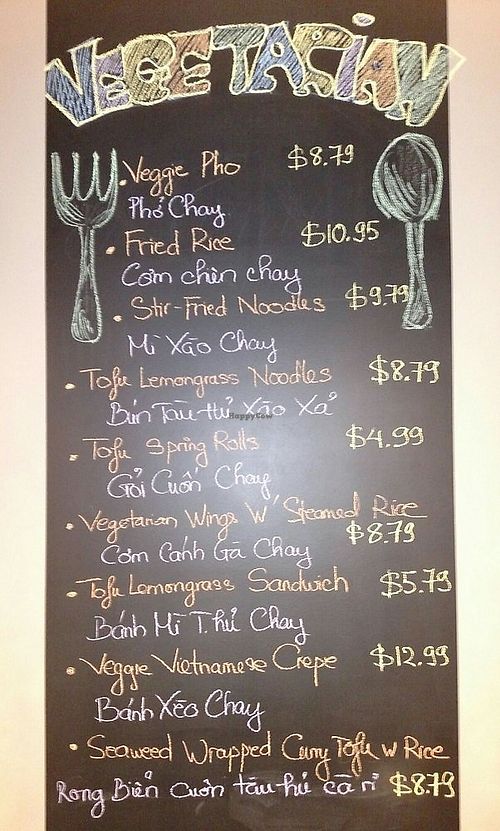 VEGETARIAN
Veggie Pho $8.79
Phở Chay
Fried Rice $10.95
Cơm chiên chay
Stir-Fried Noodles $9.79
Mì Xào Chay
Tofu Lemongrass Noodles $8.79
Bún Tàu-Hủ Xào Xả
HappyCow
Tofu Spring Rolls $4.99
Gỏi Cuốn Chay
Vegetarian Wings W/ Steamed Rice
$8.79
Cơm Cánh Gà Chay
Tofu Lemongrass Sandwich $5.79
Bánh Mì T.hủ Chay
Veggie Vietnamese Crepe $12.99
Bánh Xèo Chay
Seaweed Wrapped Curry Tofu w Rice
Rong Biển cuốn tàu-hủ cà ri $8.79